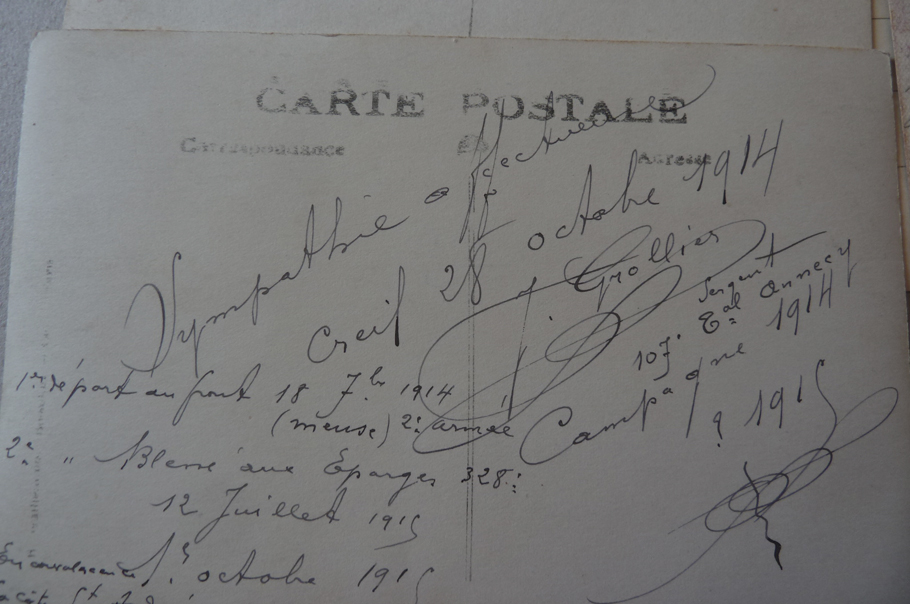 CARTE POSTALE
Correspondance Adresse
Sympathie affectueuse
Creil 28 octobre 1914
J. Grollier
Sergent
107e Eal Annecy
Campagne 1914
à 1915
1er départ au front 18 7bre 1914
(meuse) 2e armée
2e " Blessé aux Éparges 328e
12 Juillet 1915
En convalescence 1er octobre 1915